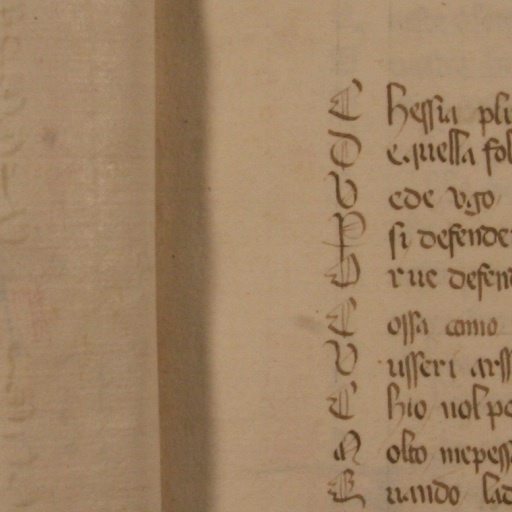 C hessia pli
D e quella fol
V ede vgo
P si defende
D r ue defen
C ossa como
V isseri arss
C hio uol po
M olto me pess
Q uando lad